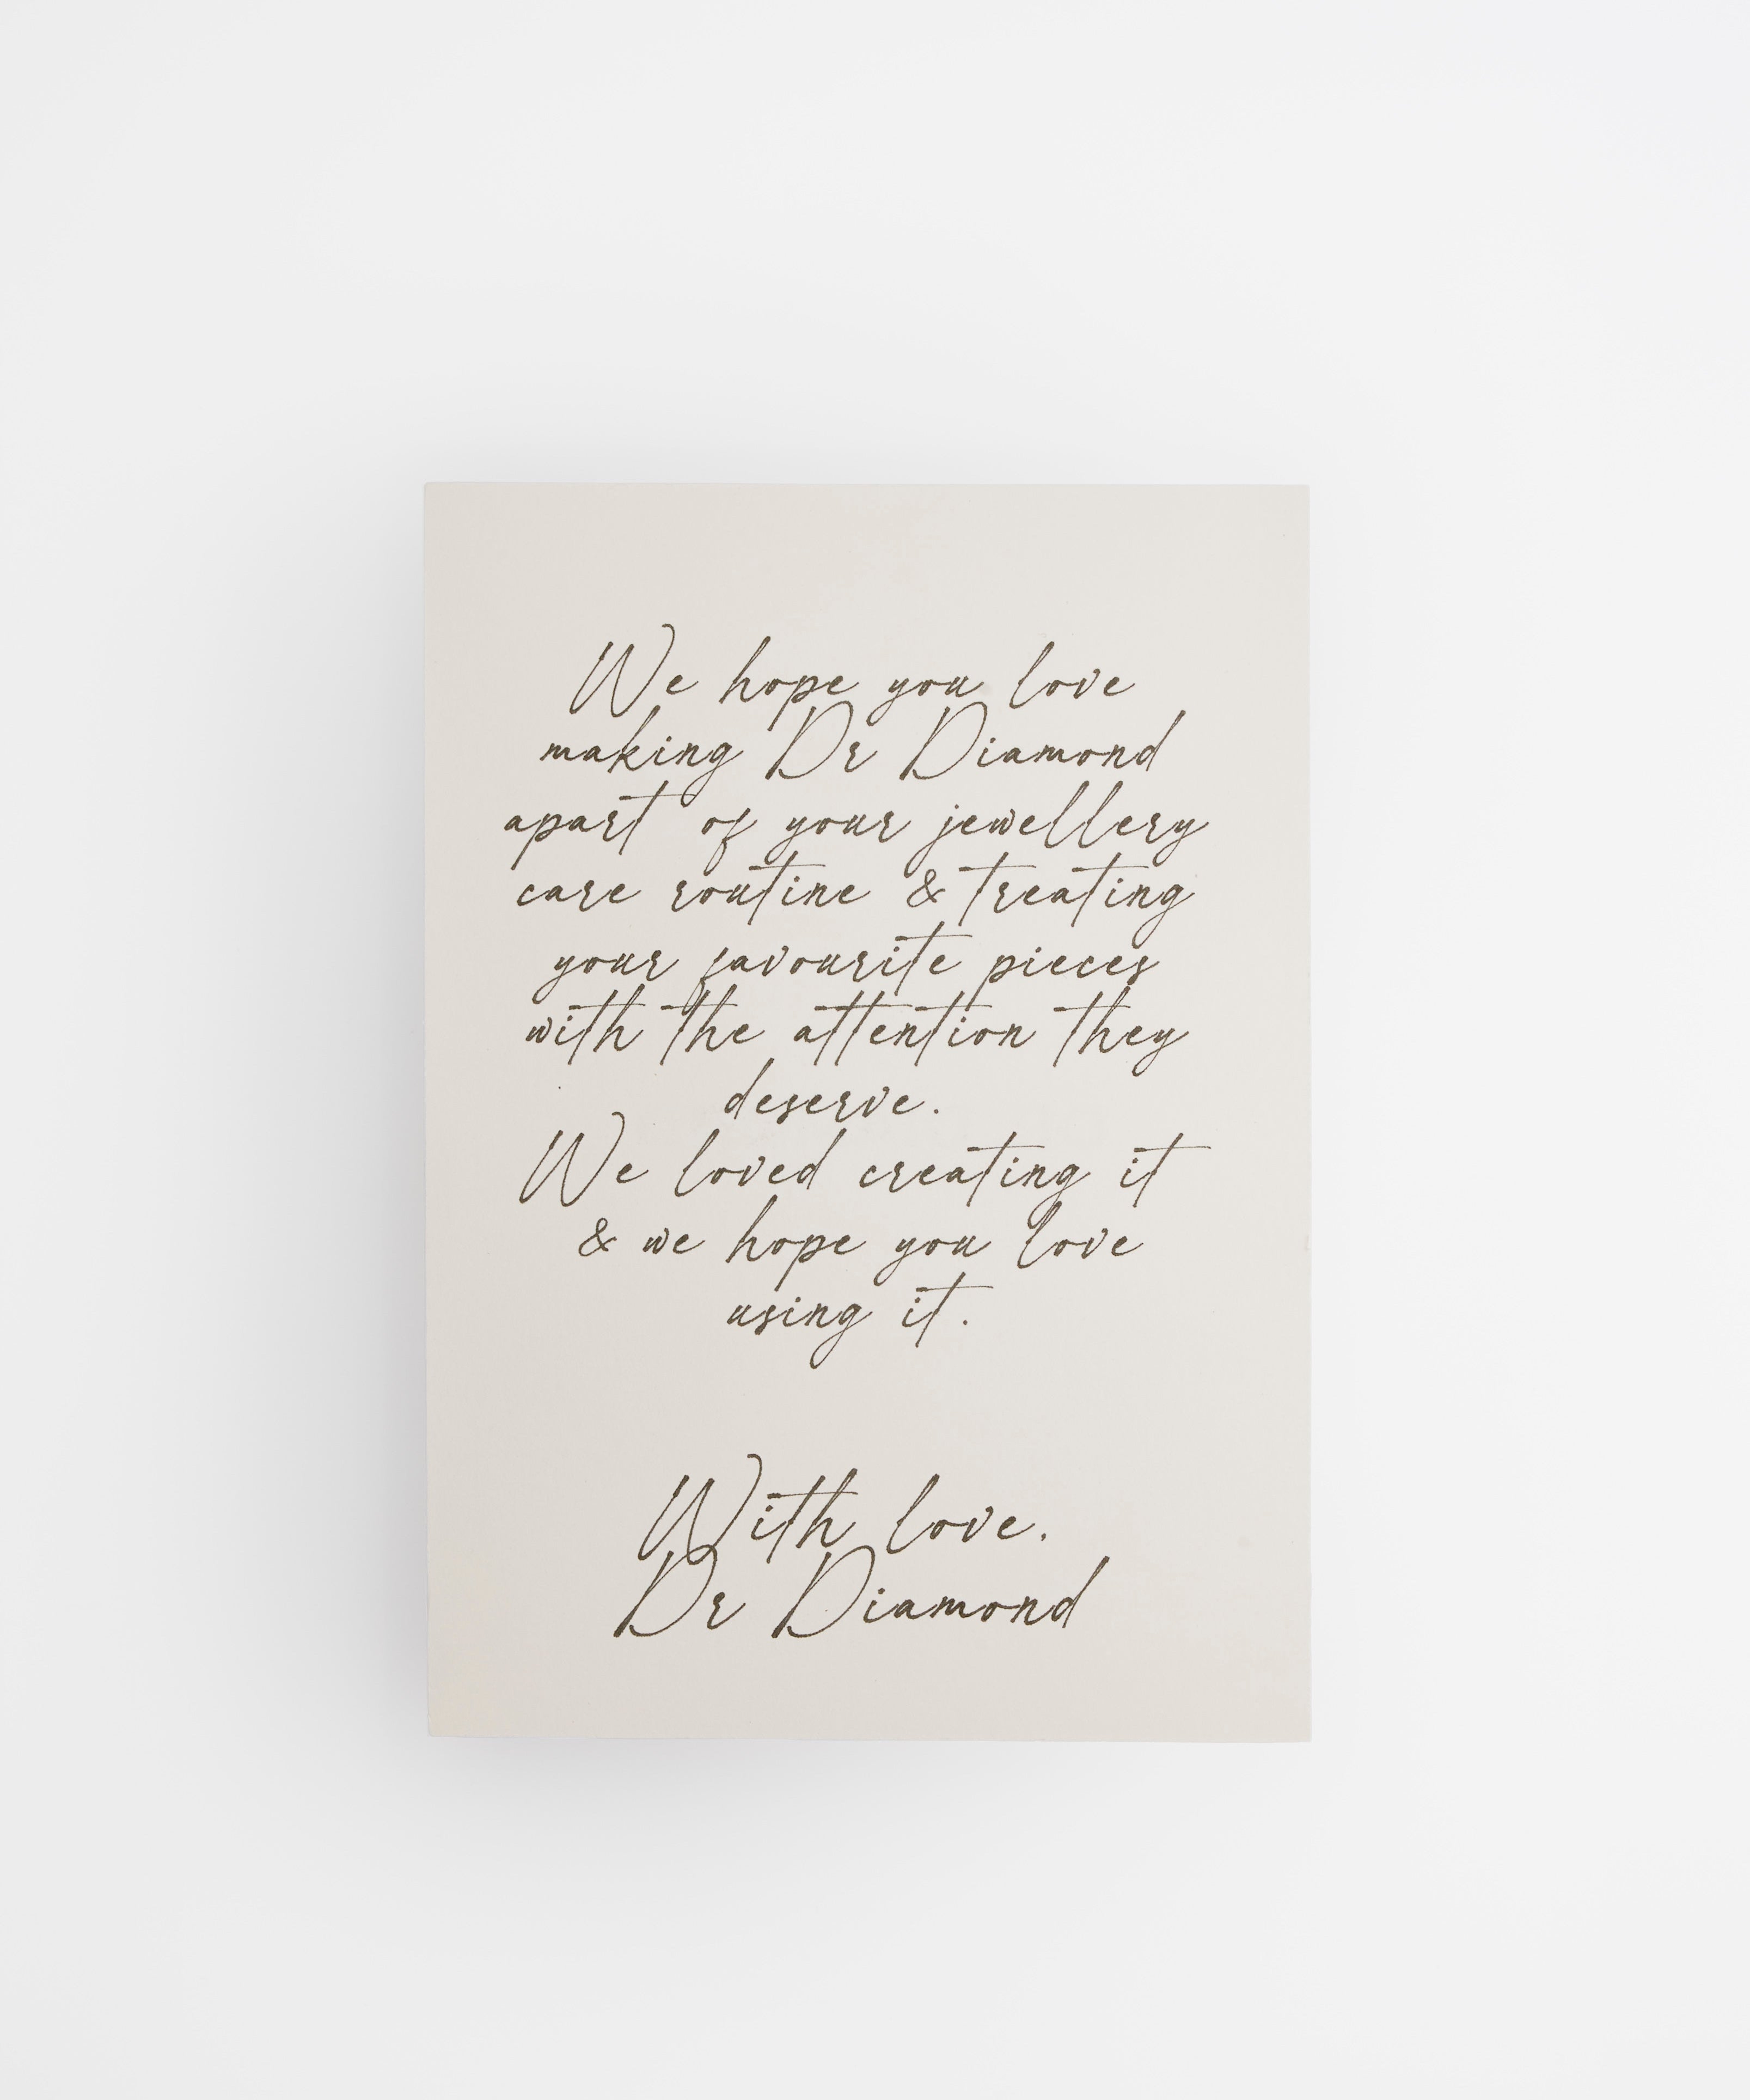 We hope you love
making Dr Diamond
apart of your jewellery
care routine & treating
your favourite pieces
with the attention they
deserve.
We loved creating it
& we hope you love
using it.
With love,
Dr Diamond